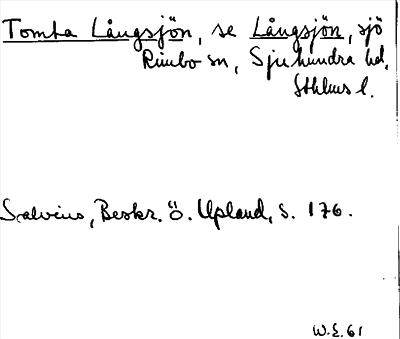 Tomta Långsjön, se Långsjön, sjö
Rimbo sn, Sjuhundra hd.
Sthlms l.
Salvius, Beskr. ö. Upland, s. 176.
W.E. 61